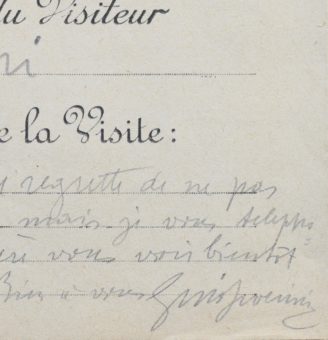 du Visiteur
e la Visite:
regrette de ne pas
mais je vous téléph
vous voir bientôt
Bien à vous